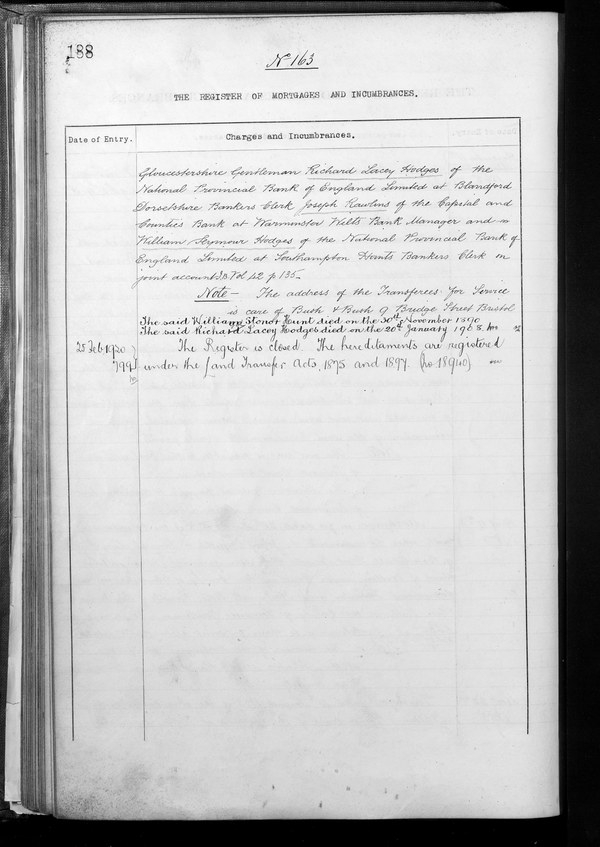 188
No 163
THE REGISTER OF MORTGAGES AND INCUMBRANCES.
Date of Entry.
Charges and Incumbrances.
Gloucestershire Gentleman Richard Lacey Hodges of the
National Provincial Bank of England Limited at Blandford
Dorsetshire Bankers Clerk Joseph Rawlins of the Capital and
Counties Bank at Warminster Wilts Bank Manager and
William Seymour Hodges of the National Provincial Bank of
England Limited at Southampton Hants Bankers Clerk on
joint account Vol 42 p 135
Note – The address of the Transferees for Service
is care of Bush & Bush 9 Bridge Street Bristol
The said William Stonor Hunt died on the 30th November 1890
The said Richard Lacey Hodges died on the 20th January 1908.
25 Feb 1920 The Register is closed. The hereditaments are registered
799 under the Land Transfer Acts, 1875 and 1897.